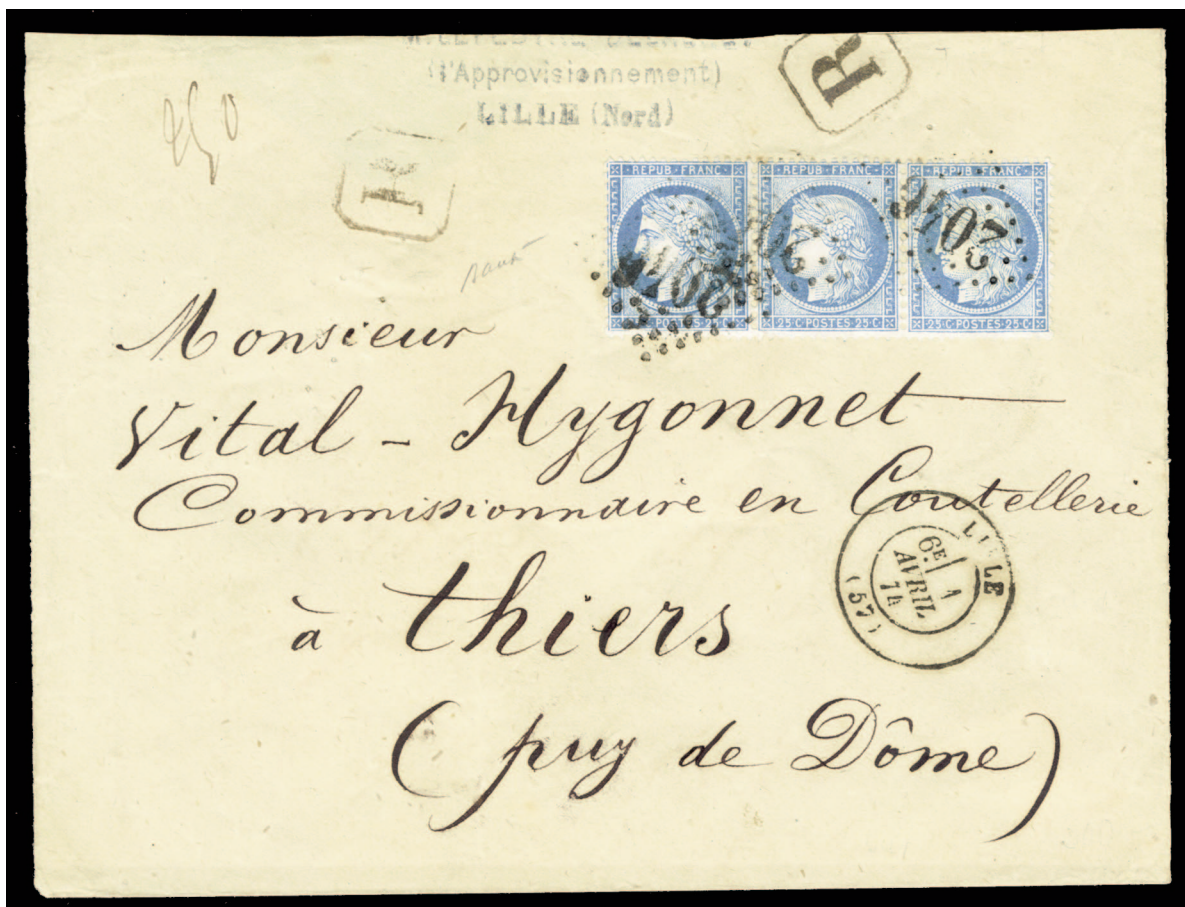 (l'Approvisionnement)
LILLE (Nord)
R
R
REPUB · FRANC ·
25·C·POSTES·25·C
REPUB · FRANC ·
25·C·POSTES·25·C
REPUB · FRANC ·
25·C·POSTES·25·C
2046
2046
Monsieur
Vital - Hygonnet
Commissionnaire en Coutellerie
à thiers
(puy de Dôme)
LILLE
6E 1
AVRIL
74
(57)